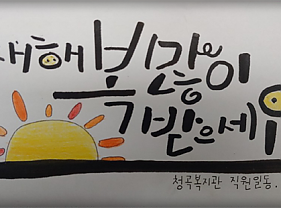 새해 복많이
받으세요
청곡복지관 직원일동.